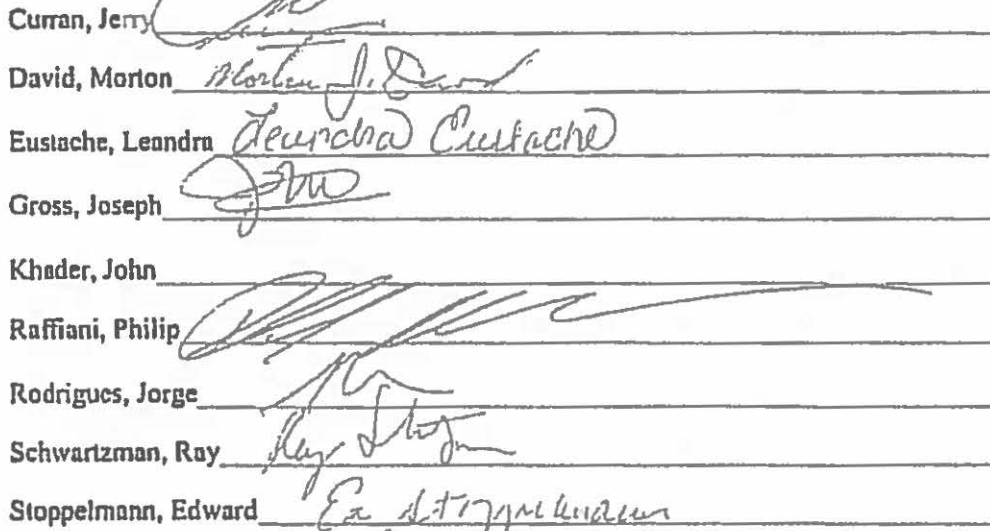 Curran, Jerry
David, Morton Morton J. David
Eustache, Leandra Leandra Eustache
Gross, Joseph
Khader, John
Raffiani, Philip
Rodrigues, Jorge
Schwartzman, Ray Ray
Stoppelmann, Edward Ed Stoppelmann